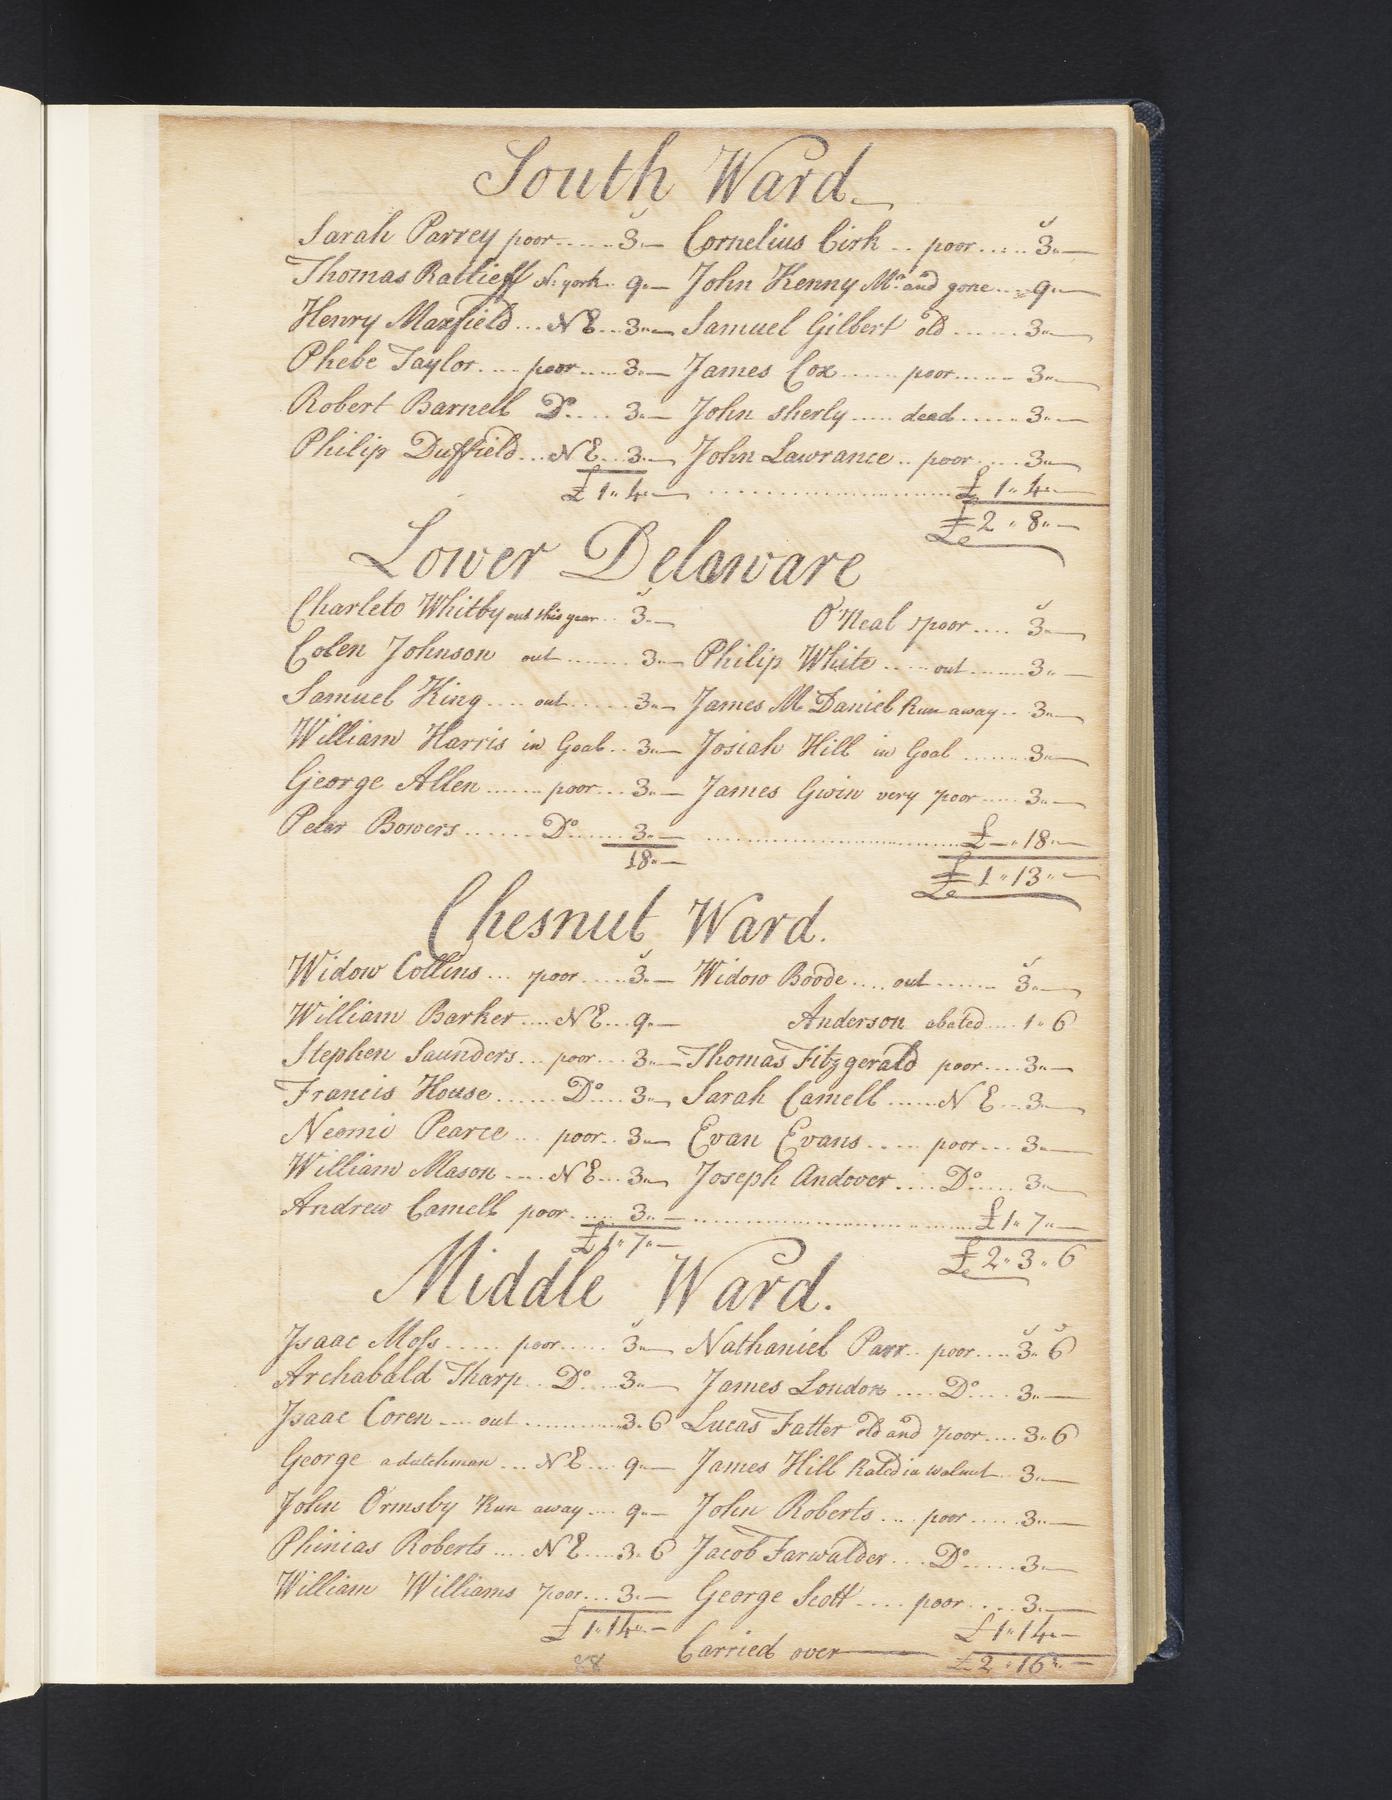 South Ward
Sarah Parrey poor ..... 3 „ — Cornelius Cirk .. poor ..... 3 „ —
Thomas Ratlieff N: york .. 9 „ — John Kenny Mn and gone ... 9 „ —
Henry Maxfield ... N E ... 3 „ — Samuel Gilbert old ...... 3 „ —
Phebe Taylor .... poor ..... 3 „ — James Cox ...... poor ...... 3 „ —
Robert Barnell Do .... 3 „ — John sherly ..... dead ...... 3 „ —
Philip Duffield ... N E ... 3 „ — John Lawrance .. poor .... 3 „ —
£ 1 „ 4 „ — .................... £ 1 „ 4 „ —
£ 2 „ 8 „ —
Lower Delaware
Charleto Whitby out this year .. 3 „ — O'Neal poor .... 3 „ —
Colen Johnson out ....... 3 „ — Philip White ..... out ...... 3 „ —
Samuel King .... out ...... 3 „ — James Mc Daniel Run away .. 3 „ —
William Harris in Goal .. 3 „ — Josiah Hill in Goal ....... 3 „ —
George Allen ...... poor ... 3 „ — James Gwin very poor .... 3 „ —
Peter Bowers ....... Do ...... 3 „ — .................... £ — „ 18 „ —
18 „ —
£ 1 „ 13 „ —
Chesnut Ward.
Widow Collins ... poor ..... 3 „ — Widow Boode .... out ....... 3 „ —
William Barker .... N E ... 9 „ — Anderson abated .... 1 „ 6
Stephen Saunders ... poor ... 3 „ — Thomas Fitzgerald poor .... 3 „ —
Francis House ...... Do .... 3 „ — Sarah Camell ...... N E ... 3 „ —
Neomi Pearce ... poor .. 3 „ — Evan Evans ..... poor .... 3 „ —
William Mason .... N E ... 3 „ — Joseph Andover .... Do ..... 3 „ —
Andrew Camell poor ..... 3 „ — .................... £ 1 „ 7 „ —
£ 1 „ 7 „ —
£ 2 „ 3 „ 6
Middle Ward.
Isaac Moss ..... poor ..... 3 „ — Nathaniel Parr .. poor .... 3 „ 6
Archabald Tharp .. Do ... 3 „ — James London .... Do .... 3 „ —
Isaac Coren .... out ............ 3 „ 6 Lucas Fatter old and poor .... 3 „ 6
George a dutchman ... N E .... 9 „ — James Hill Rated in Walnut .. 3 „ —
John Ormsby Run away .... 9 „ — John Roberts .... poor ..... 3 „ —
Phinias Roberts .... N E .... 3 „ 6 Jacob Farwalder ... Do ..... 3 „ —
William Williams poor ... 3 „ — George Scott .... poor .... 3 „ —
£ 1 „ 14 „ — £ 1 „ 14 „ —
Carried over £ 2 „ 16 „ —